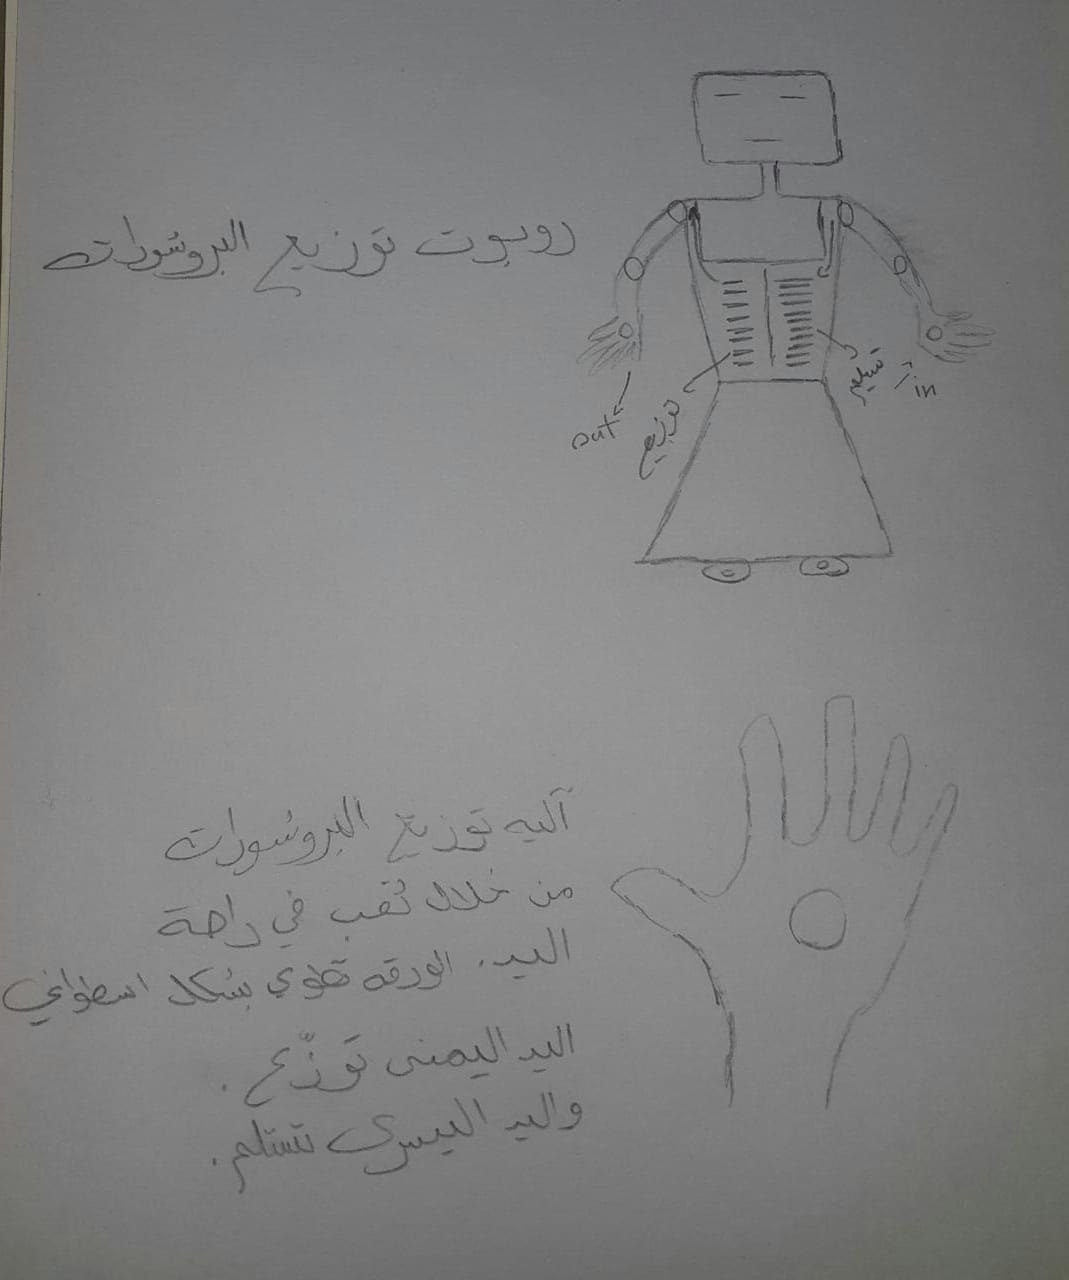 روبوت توزيع البروشورات
تستلم
in
توزيع
out
آليه توزيع البروشورات
من خلال ثقب في راحة
اليد. الورقه تطوي بشكل اسطواني
اليد اليمنى توزّع.
واليد اليسرى تستلم.